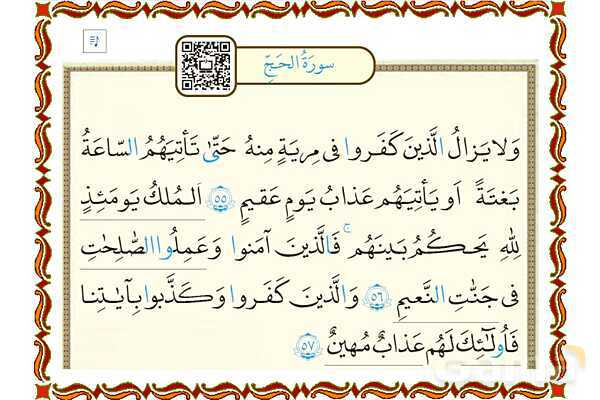 سورَةُ الحَجِّ
وَلا يَزالُ الَّذينَ كَفَروا فى مِريَةٍ مِنهُ حَتّىٰ تَأتِيَهُمُ السّاعَةُ
بَغتَةً أَو يَأتِيَهُم عَذابُ يَومٍ عَقيمٍ ٥٥ اَلمُلكُ يَومَئِذٍ
لِلّٰهِ يَحكُمُ بَينَهُم ۚ فَالَّذينَ آمَنوا وَ عَمِلُوا الصّٰلِحٰتِ
فى جَنّٰتِ النَّعيمِ ٥٦ وَالَّذينَ كَفَروا وَ كَذَّبوا بِآياتِنا
فَاُولٰئِكَ لَهُم عَذابٌ مُهينٌ ٥٧